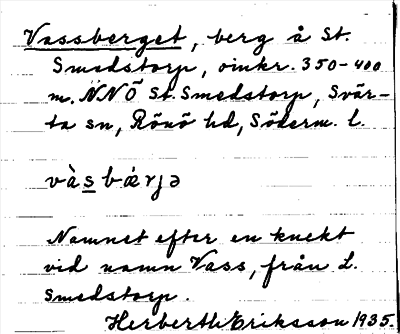 Vassberget, berg å St.
Smedstorp, omkr. 350-400
m. NNÖ St. Smedstorp, Svär-
ta sn, Rönö hd, Söderm. l.
vàs bǽrjə
Namnet efter en knekt
vid namn Vass, från L.
Smedstorp.
Herberth Eriksson 1935.